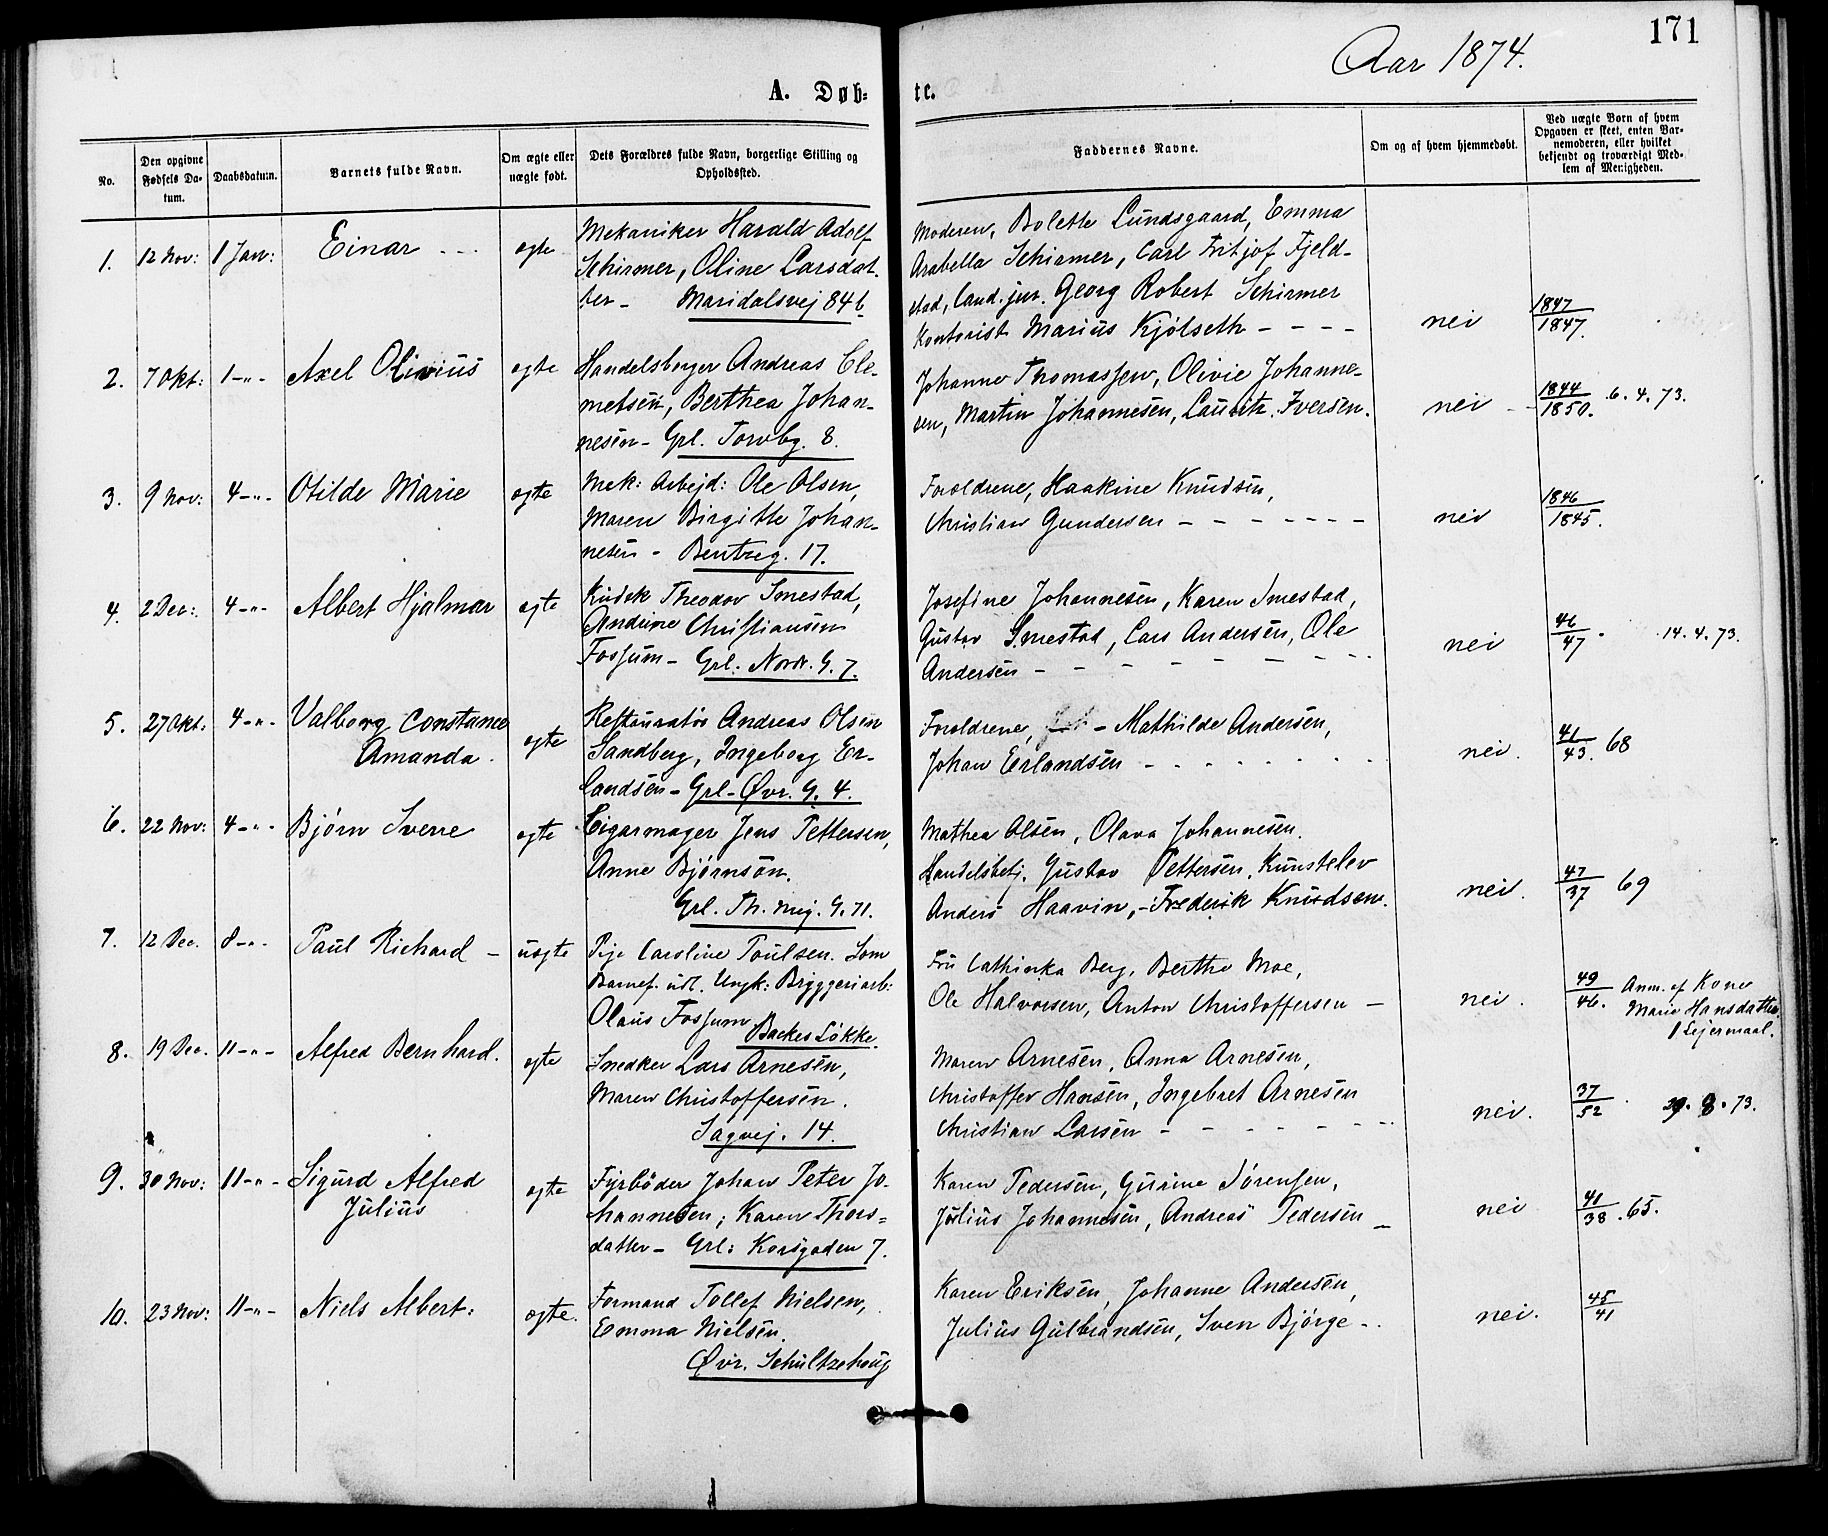 171
Aar 1874.
A. Døb-
te.
No.
Den opgivne Fødsels Da-
tum.
Daabsdatum.
Barnets fulde Navn.
Om ægte eller uægte født.
Dets Forældres fulde Navn, borgerlige Stilling og Opholdssted.
Faddernes Navne.
Om og af hvem hjemmedøbt.
Ved uægte Born af hvem Opgaven er skeet, enten Bar-
nemoderen, eller hvilket bekjendt og troværdigt Med-
lem af Menigheden.
1. 12 Nov: 1 Jan: Einar - - - ægte
Mekaniker Harald Adolf
Schirmer, Oline Larsdat.
ter - Maridalsvej 84 b
Moderen, Bolette Lundsgaard, Emma
Arabella Schirmer, Carl Fritjof Fjeld-
stad, Cand. jur. Georg Robert Schirmer
Kontorist Marius Kjølseth - - - -
nei
1847
1847.
2. 7 Okt: 1-"- Axel Olivius ægte
Handelsborger Andreas Cle-
metsen, Berthea Johan-
nesen - Grl. Torvbg. 8.
Johanne Thomassen, Olivie Johanne-
sen, Martin Johannesen, Lauritz Iversen.
nei -
1844
1850. 6. 4. 73.
3. 9 Nov: 4-"- Otilde Marie ægte
Mek: Arbejd: Ole Olsen,
Maren Birgitte Johan-
nesen - Bentzeg. 17.
Forældrene, Haakine Knudsen,
Christian Gundersen - - - - - - -
nei
1846
1845.
4. 2 Dec: 4-"- Albert Hjalmar ægte
Kudsk Theodor Smestad,
Andrine Christiansen
Fossum - Grl. Nordr. G. 7.
Josefine Johannesen, Karen Smestad,
Gustav Smestad, Lars Andersen, Ole
Andersen - - - - - - - -
nei
46
47. 14. 4. 73.
5. 27 Okt: 4-"- Valborg Constance
Amanda. ægte
Restauratør Andreas Olsen
Sandberg, Ingeborg Er-
landsen - Grl - Øvr. G. 4.
Forældrene, - Mathilde Andersen,
Johan Erlandsen - - - - - - - -
nei.
41
43. 68
6. 22 Nov: 4-"- Bjørn Sverre ægte
Cigarmager Jens Pettersen,
Anne Bjørnson.
Grl. Th. Mej. G. 71.
Mathea Olsen, Olava Johannesen.
Handelsbetj. Gustav Pettersen, Kunstelev
Anders Haavin, - Frederik Knudsen.
nei.
47
37 69
7. 12 Dec. 8-"- Paul Richard - uægte
Pige Caroline Poulsen. Som
Barnef. udl. Ungk: Bryggeriarb:
Olaus Fossum Backes Løkke.
Fru Cathinka Berg, Berthe Moe,
Ole Halvorsen, Anton Christoffersen -
nei.
49
46. Anm. af Kone
Marie Hansdatter.
1 Lejermaal.
8. 19 Dec. 11-"- Alfred Bernhard. ægte
Snedker Lars Arnesen,
Maren Christoffersen.
Sagvej. 14.
Maren Arnesen, Anna Arnesen,
Christoffer Hansen, Ingebret Arnesen
Christian Larsen - - - - - - -
nei.
37
52 8. 73.
9. 30 Nov: 11-"- Sigurd Alfred
Julius ægte
Fyrbøder Johan Peter Jo-
hannesen; Karen Thors-
datter - Grl: Korsgaden 7.
Karen Pedersen, Gurine Sørensen,
Julius Johannesen, Andreas Pedersen -
nei
41
38. 65.
10. 23 Nov: 11-"- Niels Albert: ægte.
Formand Tollef Nielsen,
Emma Nielsen.
Øvr. Schultzehaug
Karen Eriksen, Johanne Andersen,
Julius Gulbrandsen, Sven Bjørge -
nei.
45
41